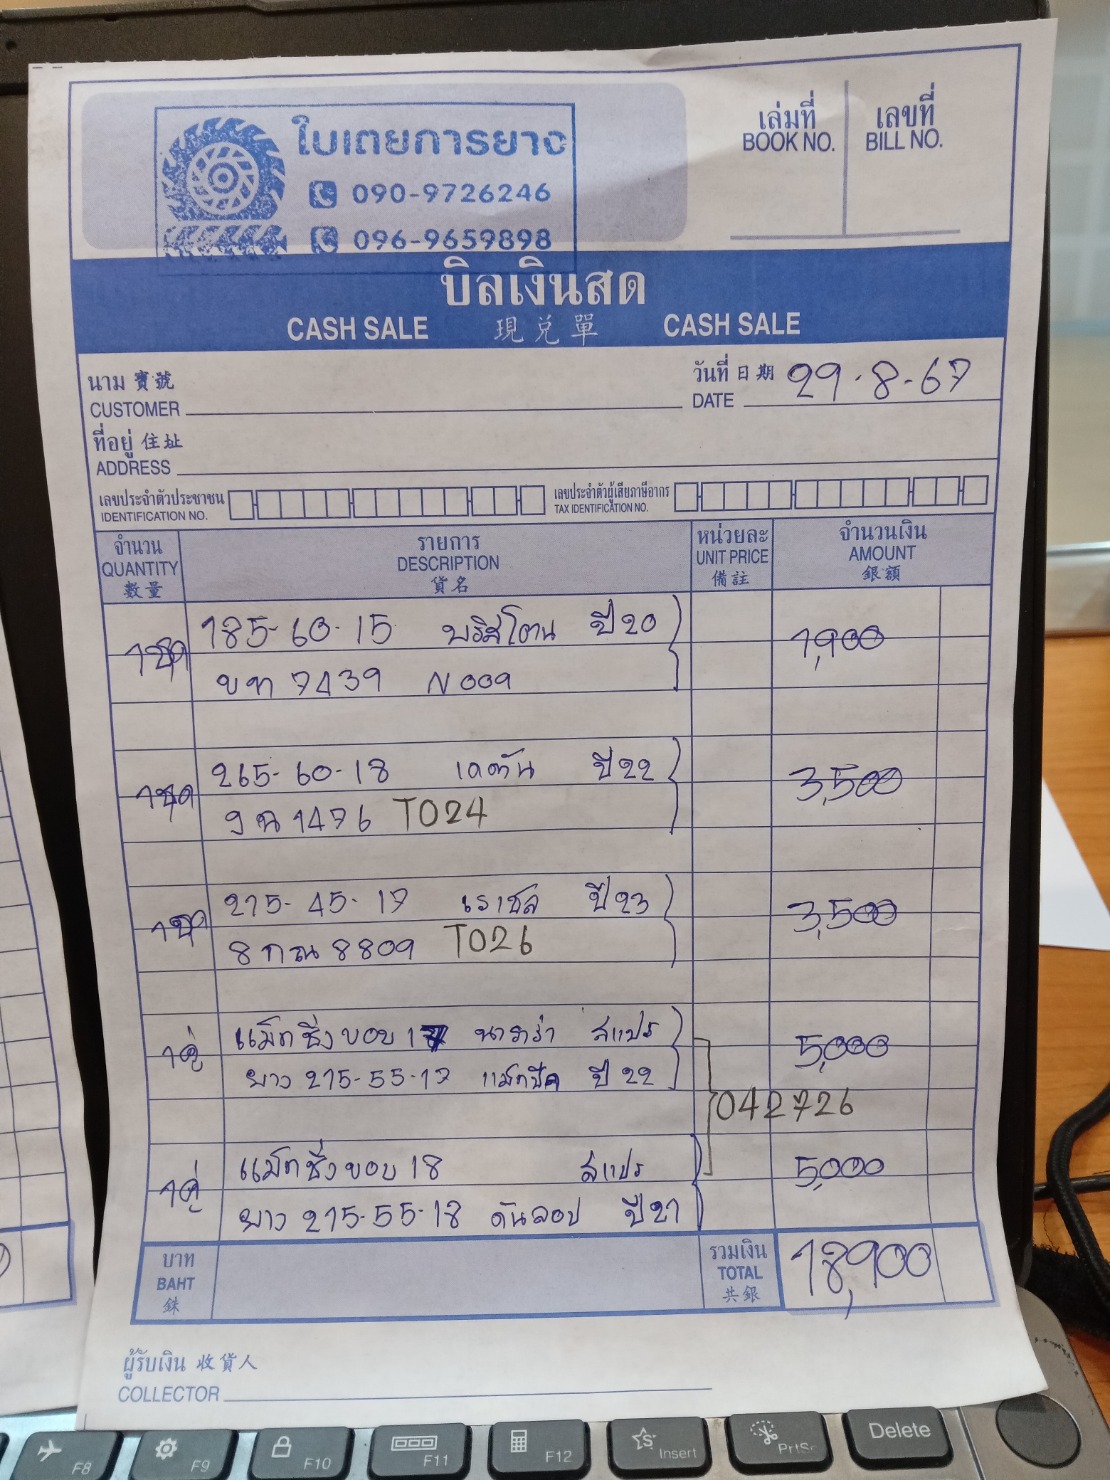 ใบเตยการยาง
090-9726246
096-9659898
เล่มที่
BOOK NO.
เลขที่
BILL NO.
บิลเงินสด
CASH SALE 現兑單 CASH SALE
นาม 寶號
CUSTOMER
วันที่ 日期 29·8·67
DATE
ที่อยู่ 住址
ADDRESS
เลขประจำตัวประชาชน
IDENTIFICATION NO.
เลขประจำตัวผู้เสียภาษีอากร
TAX IDENTIFICATION NO.
จำนวน
QUANTITY
數量
รายการ
DESCRIPTION
貨名
หน่วยละ
UNIT PRICE
備註
จำนวนเงิน
AMOUNT
銀額
1ชุด 185-60-15 ปี 20 1,900
ขท 7439 N009
1ชุด 265-60-18 ปี 22 3,500
1476 T024
1ชุด 215-45-17 ปี 23 3,500
8 กฌ 8809 T026
1คู่ แม็กซิ่งขอบ 17 นาวาร่า สแปร 5,000
ยาง 215-55-17 แม็กซีส ปี 22
042726
1คู่ แม็กซิ่งขอบ 18 สแปร 5,000
ยาง 215-55-18 ดันลอป ปี 21
บาท
BAHT
銖
รวมเงิน
TOTAL
共銀
18,900
ผู้รับเงิน 收貨人
COLLECTOR
F8
F9
F10
F11
F12
Insert
PrtSc
Delete